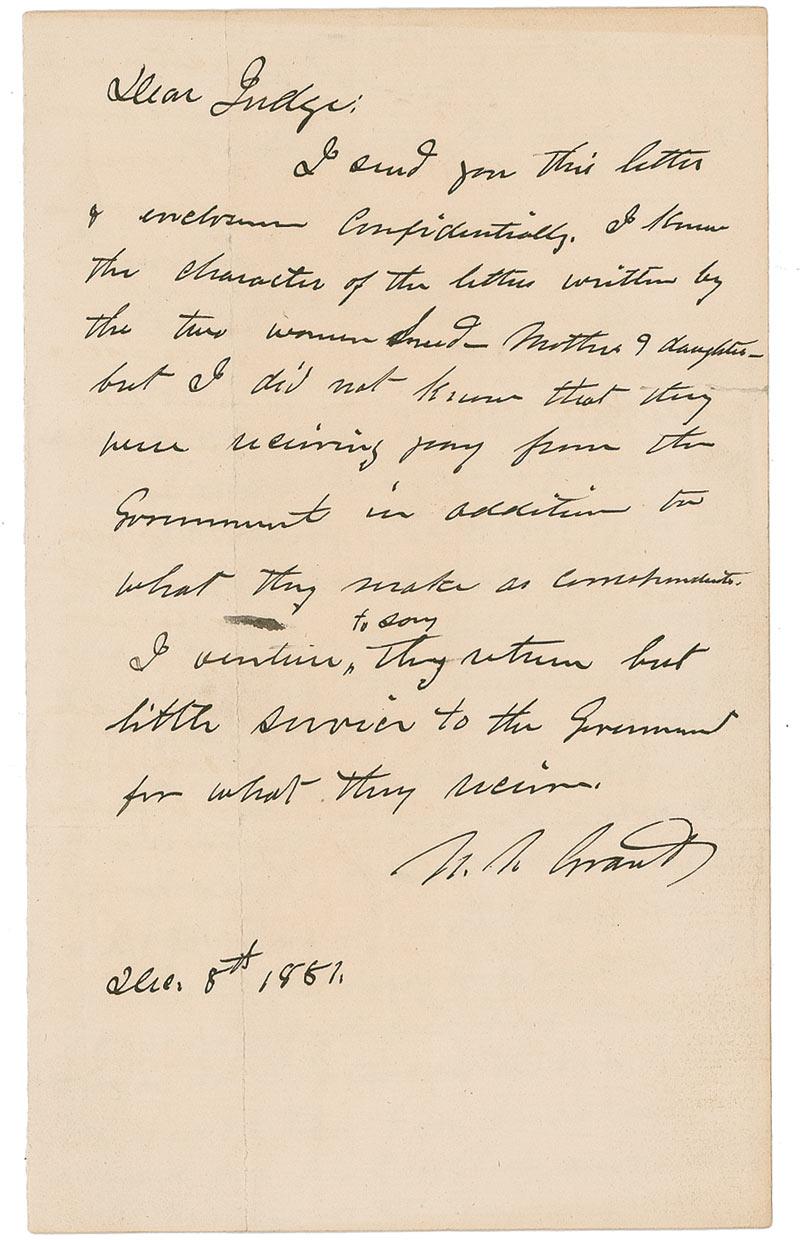 Dear Judge:
I send you this letter
& enclosure confidentially. I knew
the character of the letters written by
the two women Snead - Mother & daughter -
but I did not know that they
were receiving pay from the
Government in addition to
what they make as correspondents.
to say
I venture, they return but
little service to the Government
for what they receive.
U. S. Grant
Dec. 8th 1881.